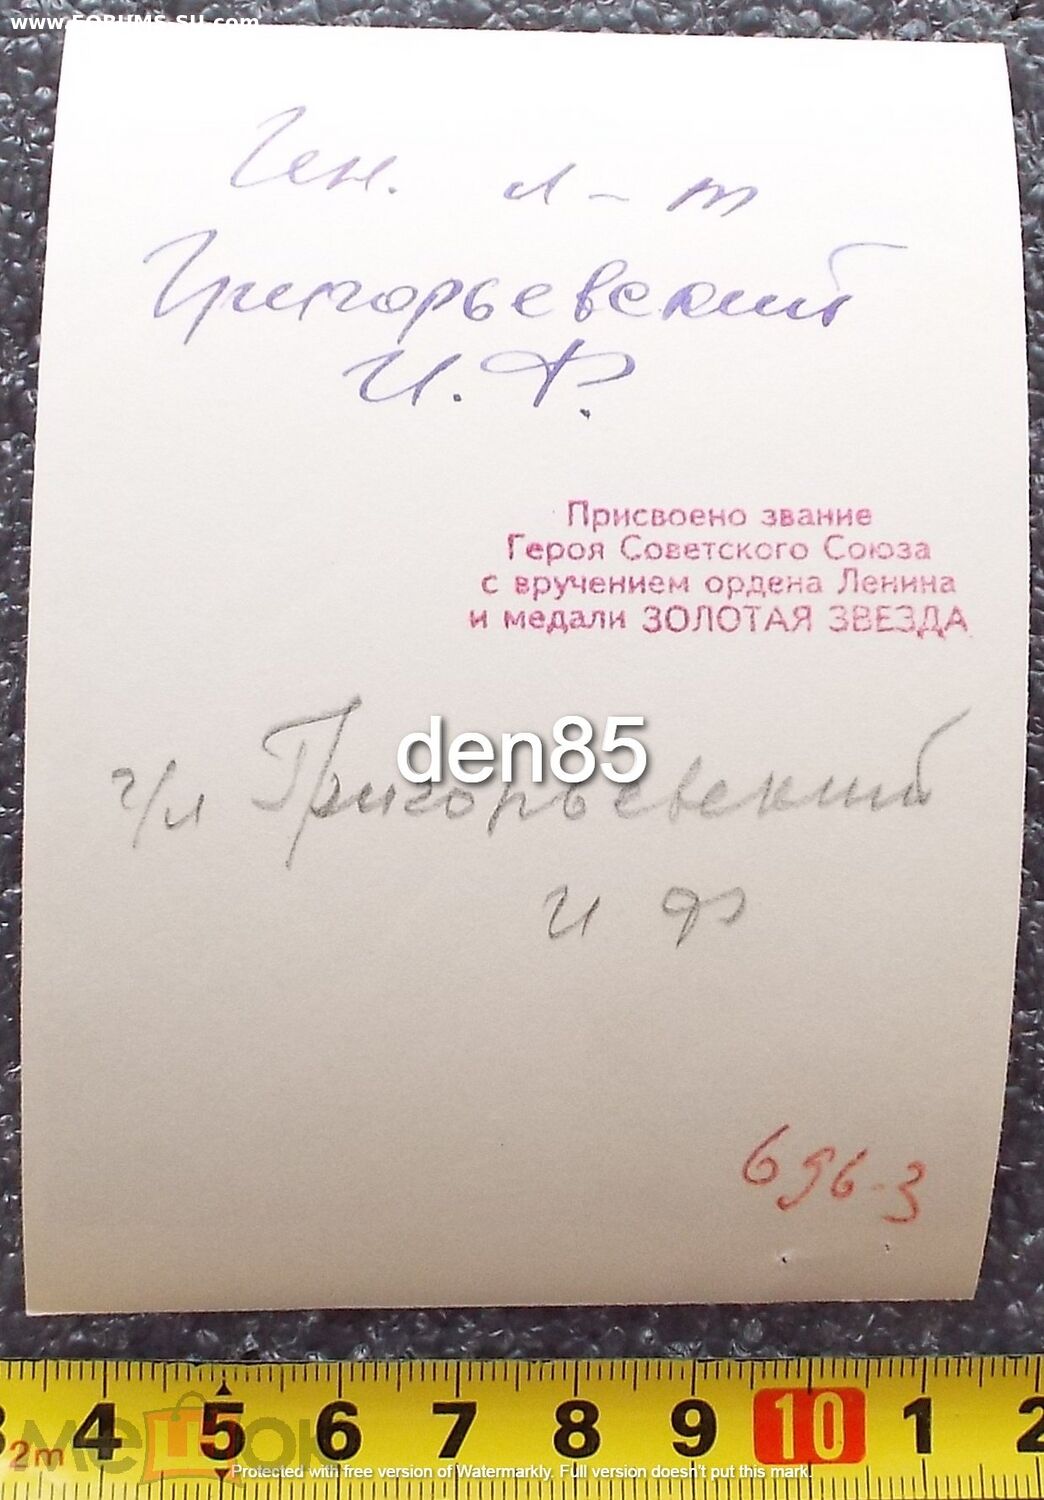 www.FORUMS-SU.com
Ген. л-т
Григорьевский
И.Ф.
Присвоено звание
Героя Советского Союза
с вручением ордена Ленина
и медали ЗОЛОТАЯ ЗВЕЗДА
den85
г/л Григорьевский
И Ф
696-3
3 4 5 6 7 8 9 10 1 2
2m
мешок
Protected with free version of Watermarkly. Full version doesn't put this mark.